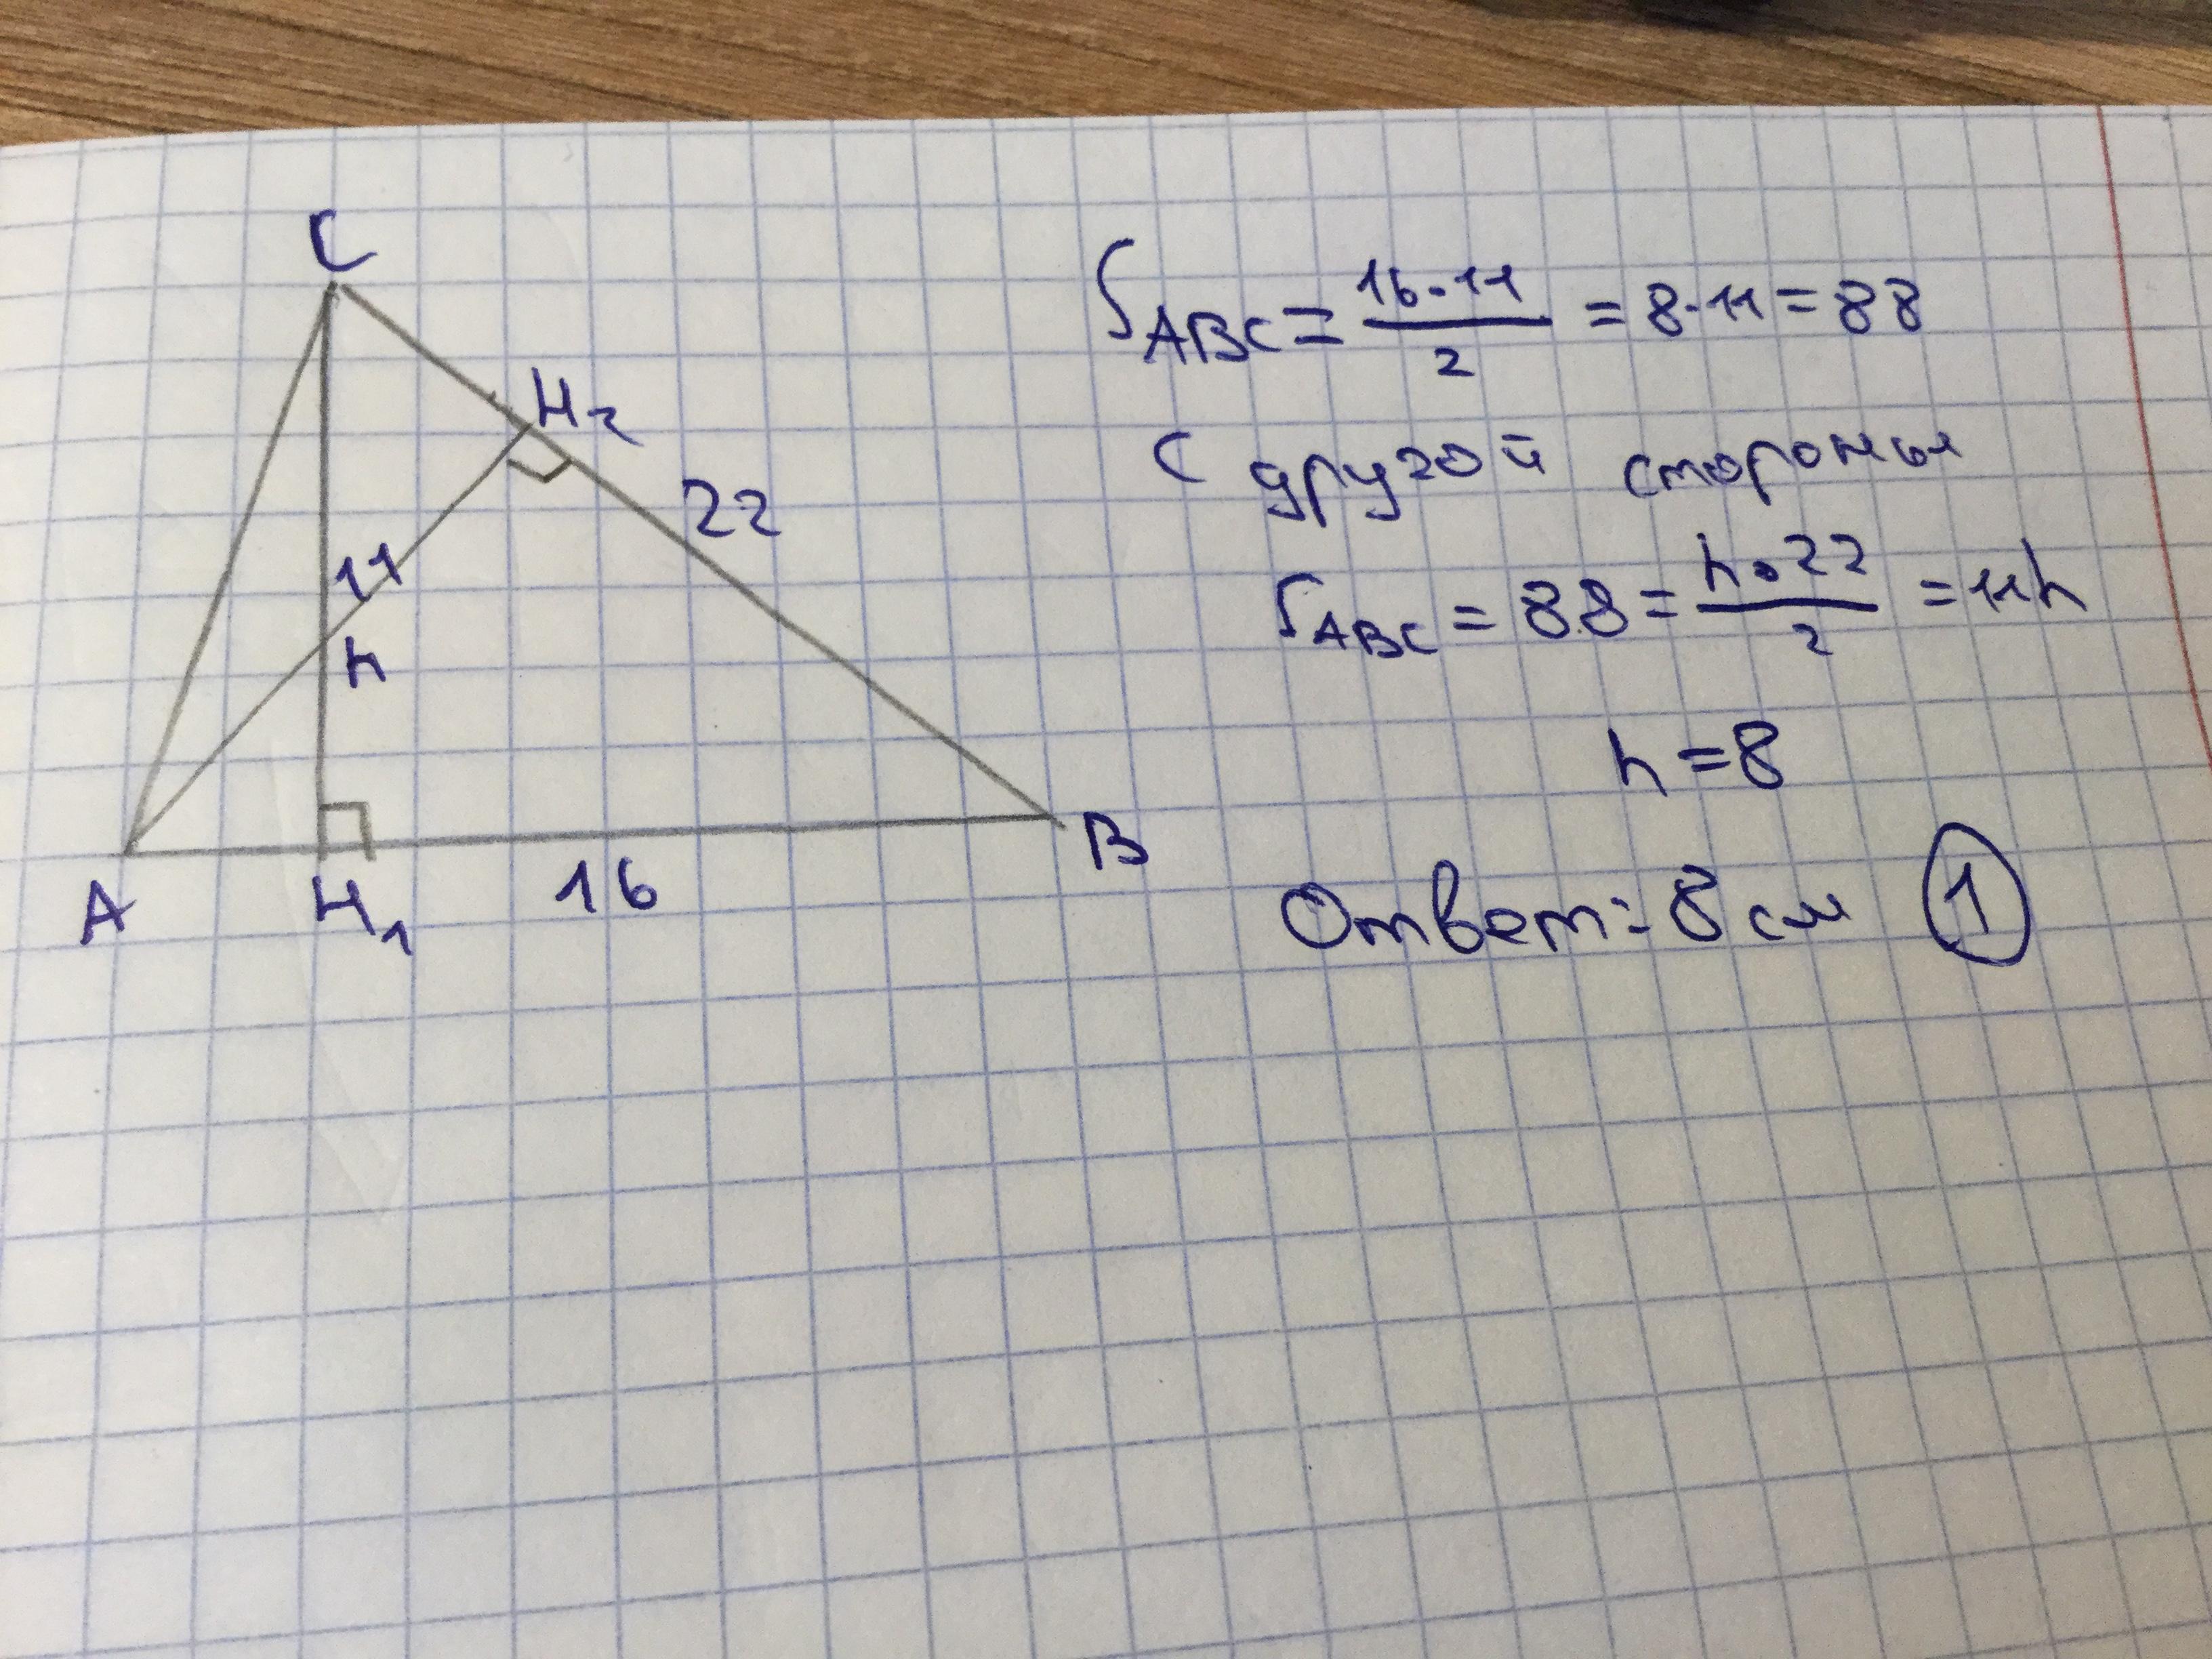 C
H₂
22
11
h
A
H₁
16
B
S_ABC = 16·11/2 = 8·11 = 88
С другой стороны
S_ABC = 88 = h·22/2 = 11h
h = 8
Ответ: 8 см 1